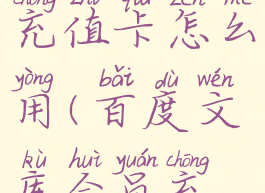 chōng zhí qiǎ zěn me
充值卡怎么
yòng bǎi dù wén
用(百度文
kù huì yuán chōng
库会员充